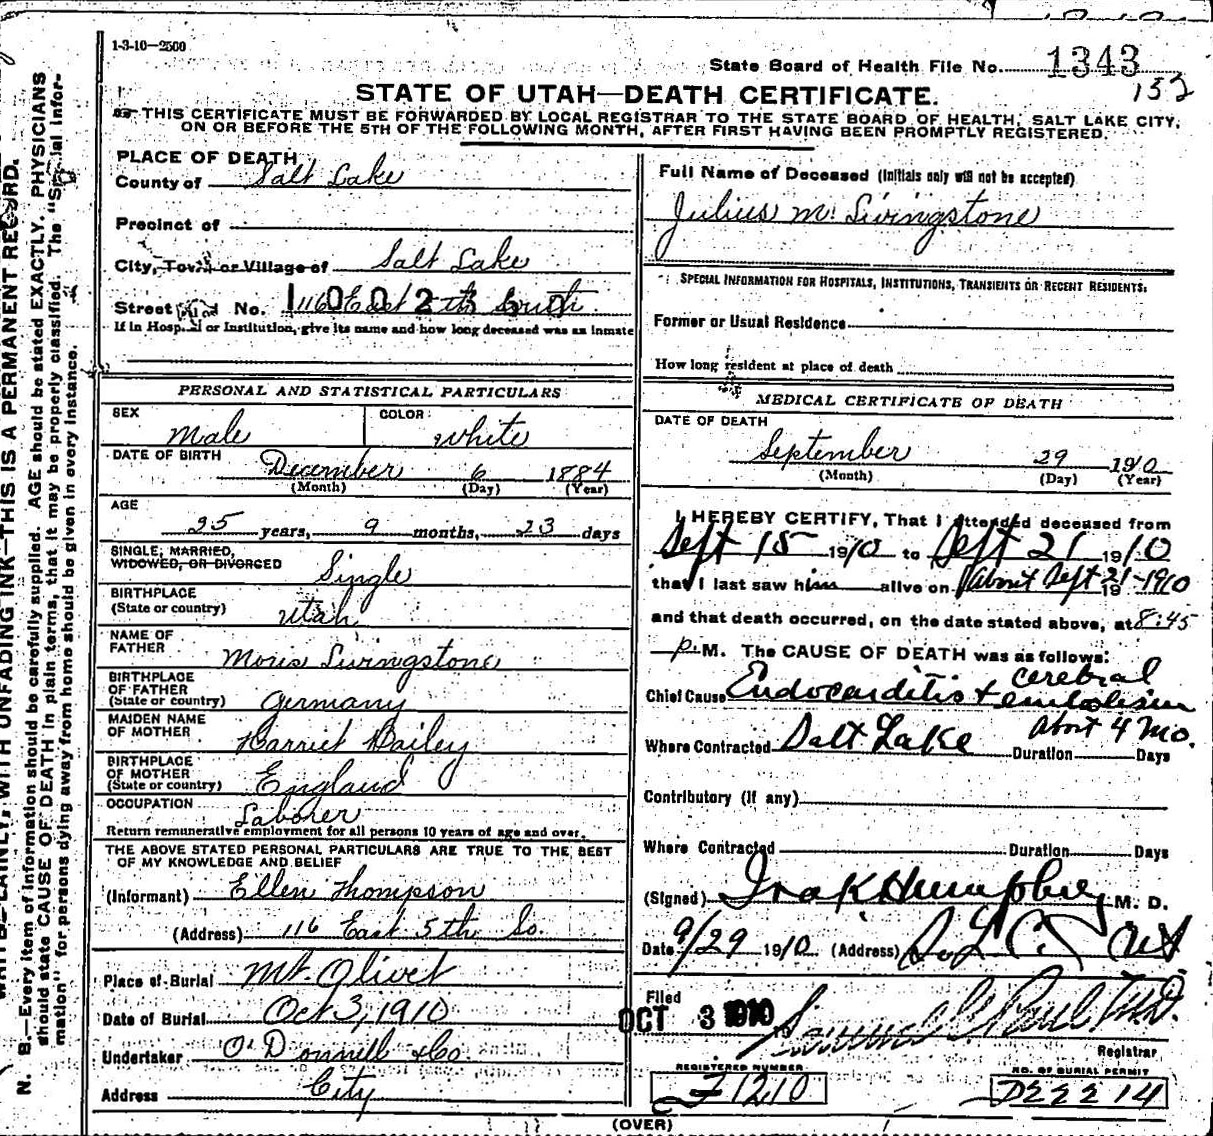 1-3-10—2500
State Board of Health File No. 1343
132
STATE OF UTAH—DEATH CERTIFICATE.
THIS CERTIFICATE MUST BE FORWARDED BY LOCAL REGISTRAR TO THE STATE BOARD OF HEALTH, SALT LAKE CITY,
ON OR BEFORE THE 5TH OF THE FOLLOWING MONTH, AFTER FIRST HAVING BEEN PROMPTLY REGISTERED.
PLACE OF DEATH
County of Salt Lake
Precinct of
City, Town or Village of Salt Lake
Street and No. 116 East 5th South
If in Hospital or Institution, give its name and how long deceased was an inmate
PERSONAL AND STATISTICAL PARTICULARS
SEX Male COLOR white
DATE OF BIRTH December 6 1884
(Month) (Day) (Year)
AGE
25 years, 9 months, 23 days
SINGLE, MARRIED,
WIDOWED, OR DIVORCED Single
BIRTHPLACE
(State or country) Utah
NAME OF
FATHER Moris Livingstone
BIRTHPLACE
OF FATHER
(State or country) Germany
MAIDEN NAME
OF MOTHER Harriet Bailey
BIRTHPLACE
OF MOTHER
(State or country) England
OCCUPATION Laborer
Return remunerative employment for all persons 10 years of age and over.
THE ABOVE STATED PERSONAL PARTICULARS ARE TRUE TO THE BEST
OF MY KNOWLEDGE AND BELIEF
(Informant) Ellen Thompson
(Address) 116 East 5th So.
Place of Burial Mt Olivet
Date of Burial Oct 3, 1910
Undertaker O'Donnell & Co.
Address City
Full Name of Deceased (Initials only will not be accepted)
Julius M. Livingstone
SPECIAL INFORMATION FOR HOSPITALS, INSTITUTIONS, TRANSIENTS OR RECENT RESIDENTS:
Former or Usual Residence
How long resident at place of death
MEDICAL CERTIFICATE OF DEATH
DATE OF DEATH
September 29 1910
(Month) (Day) (Year)
I HEREBY CERTIFY, That I attended deceased from
Sept 15 1910 to Sept 21 1910
that I last saw him alive on about Sept 21-1910
and that death occurred, on the date stated above, at 8:45
P. M. The CAUSE OF DEATH was as follows:
Chief Cause Endocarditis + cerebral embolism
Where Contracted Salt Lake Duration about 4 mo. Days
Contributory (if any)
Where Contracted Duration Days
(Signed) Ira K Humphrey M. D.
Date 9/29 1910 (Address) S. L. C. Ut
Filed
OCT 3 1910 Samuel G. Paul M.D.
Registrar
REGISTERED NUMBER
F1210
NO. OF BURIAL PERMIT
D22214
(OVER)
N. B.—Every item of information should be carefully supplied. AGE should be stated EXACTLY. PHYSICIANS
should state CAUSE OF DEATH in plain terms, that it may be properly classified. The "Special Infor-
mation" for persons dying away from home should be given in every instance.
PLAINLY, WITH UNFADING INK—THIS IS A PERMANENT RECORD.